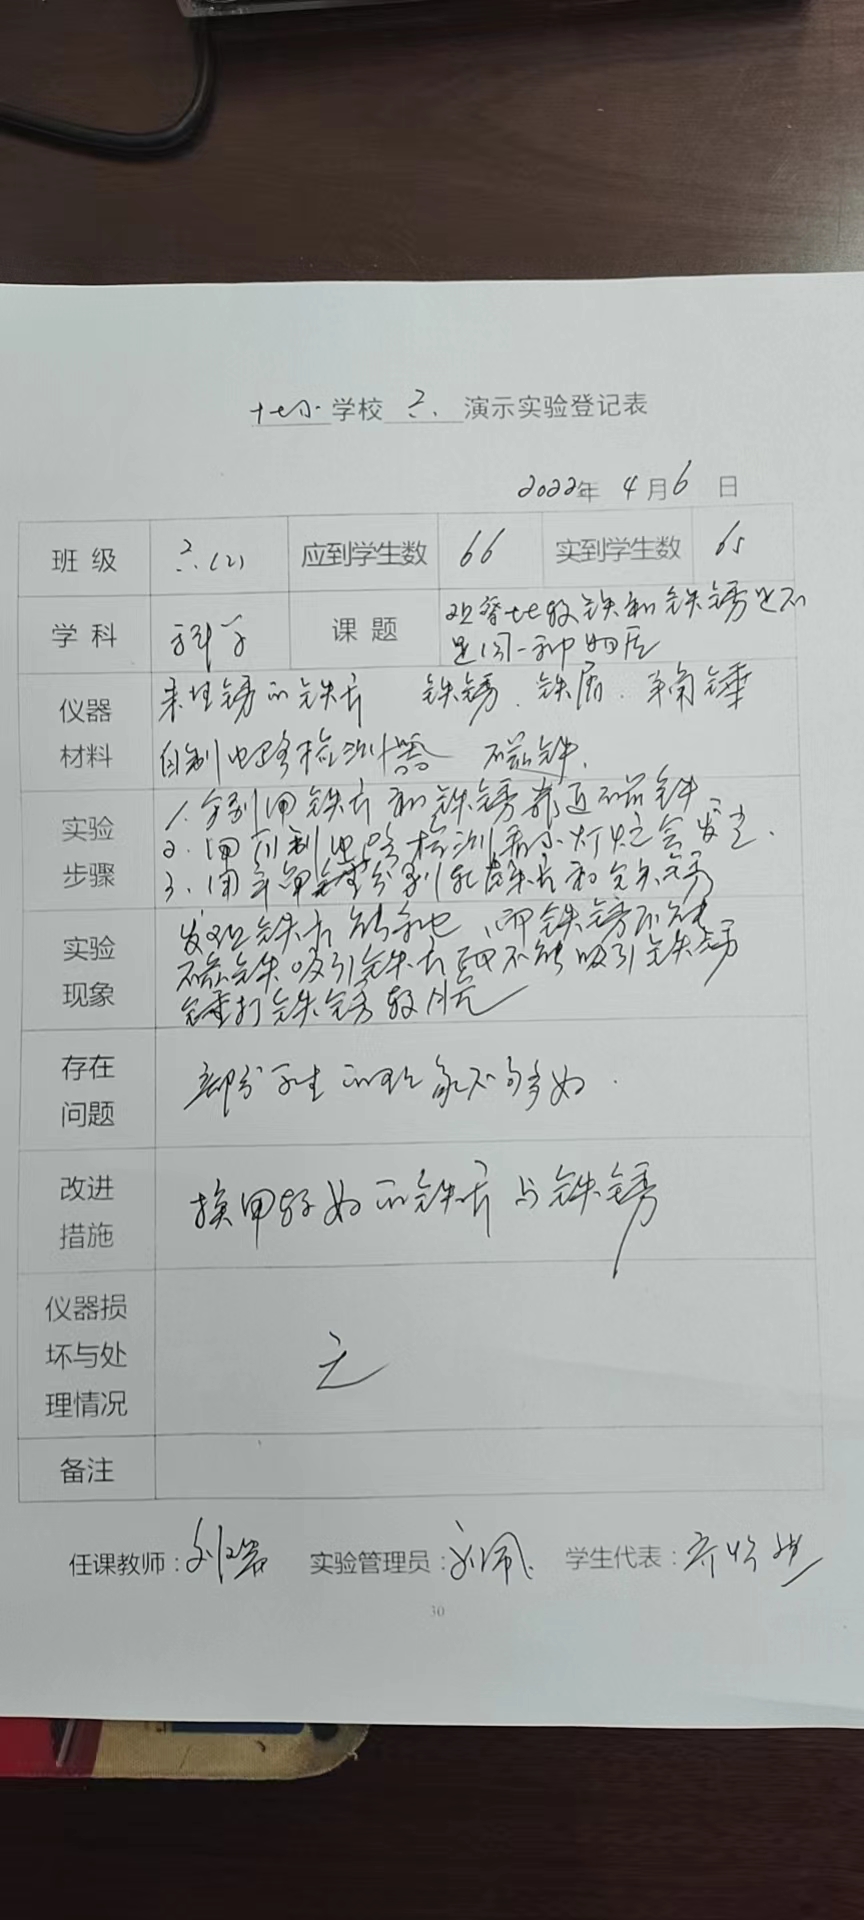 十七小学校 六. 演示实验登记表
2022年 4月6日
班级 六.(2) 应到学生数 66 实到学生数 65
学科 科学 课题 观察比较铁和铁锈是不
是同一种物质
仪器材料 未生锈的铁片 铁锈.铁屑.羊角锤
自制电路检测器 磁铁.
实验步骤 1.分别用铁片和铁锈靠近磁铁
2.用自制电路检测看小灯泡会发光.
3.用羊角锤分别敲铁片和铁锈
实验现象 发现铁片能导电,而铁锈不能
磁铁吸引铁片而不能吸引铁锈
锤打铁锈较脆
存在问题 部分学生的现象不够多好.
改进措施 换用较好的铁片与铁锈
仪器损坏与处理情况 无
备注
任课教师: 实验管理员: 学生代表:
30